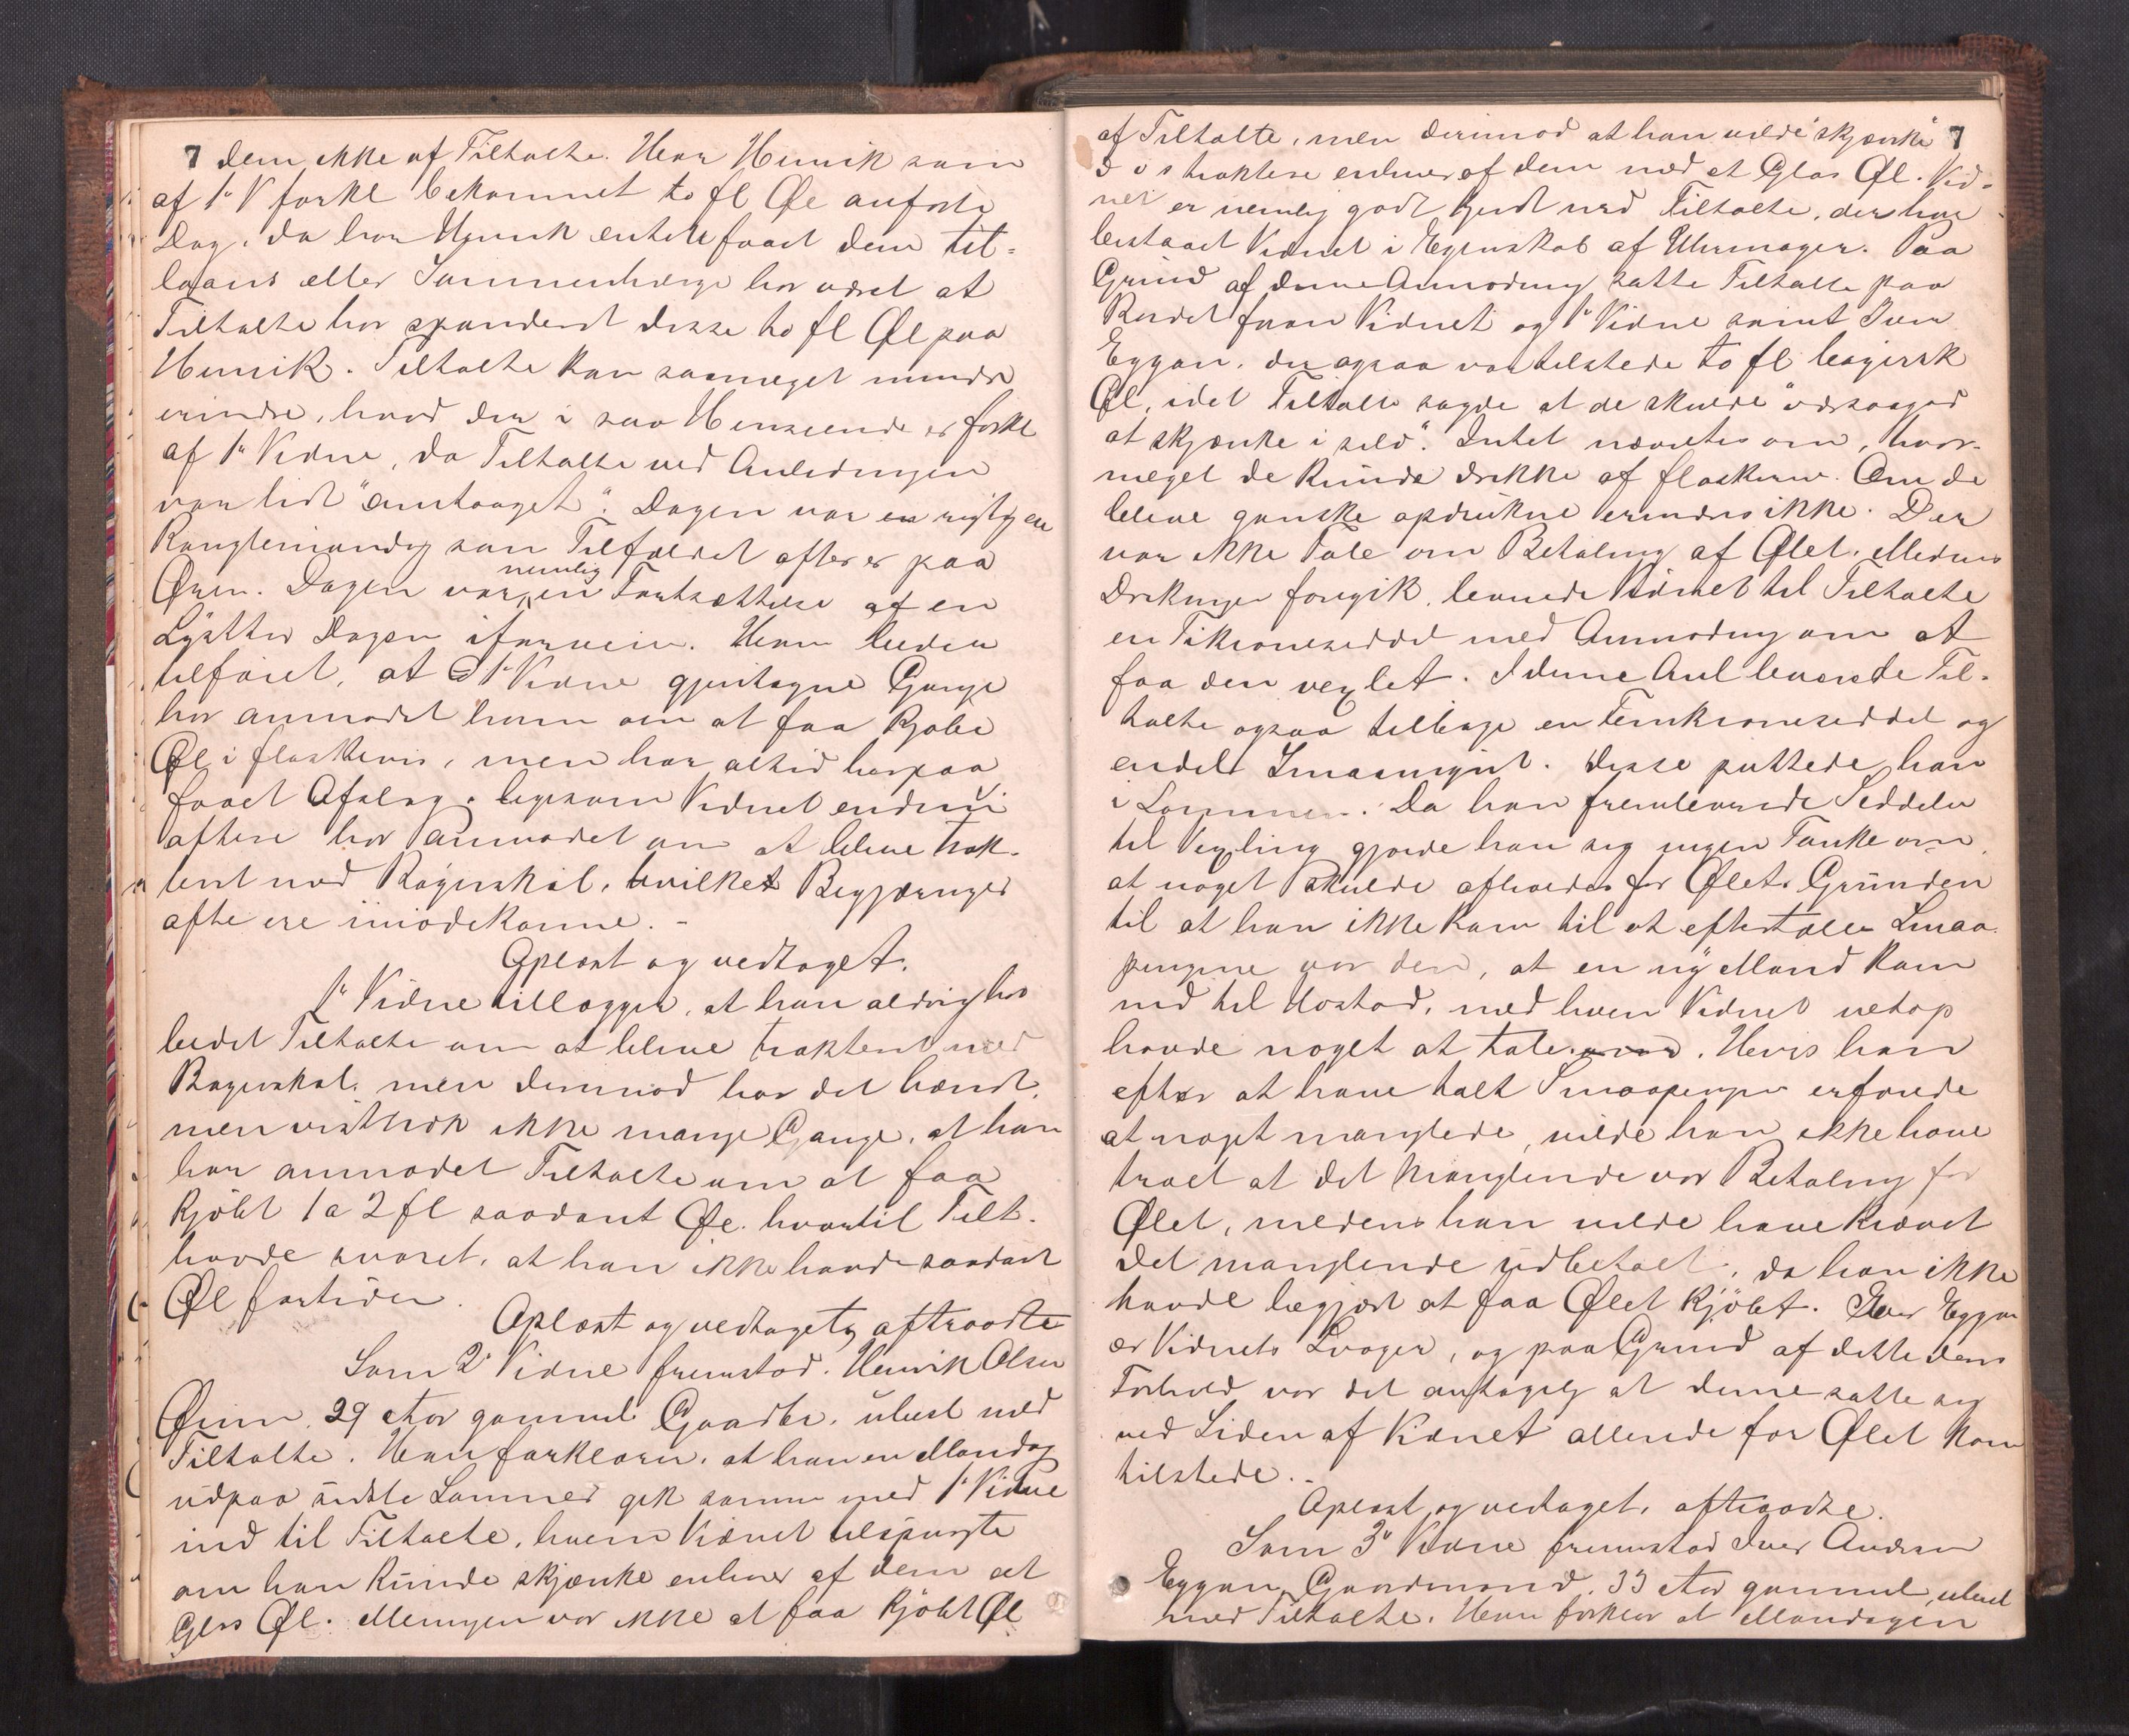 7 dem ikke af Tiltalte. Har Henrik som
af 1ᵗᵉ V forkl bekommet to fl Øl anførte
Dag, da har Henrik enten faaet dem til-
laans eller Sammenhænge har været at
Tiltalte har spanderet disse to fl Øl paa
Henrik. Tiltalte kan saameget mindre
erindre, hvad der i saa Henseende er forkl
af 1ᵗᵉ Vidne, da Tiltalte ved Anledningen
var lidt "omtaaget". Dagen var en rigtig en
Ranglemandag som Tilfældet ofte er paa
Øren. Dagen var nemlig en Fortsættelse af en
Lystber Dagen iforveien. Han leder
tilføiet, at 1ᵗᵉ Vidne gjentagne Gange
har anmodet ham om at faa kjøbe
Øl i flaskevis, men har altid herpaa
faaet Afslag, ligesom Vidnet endvi
oftere har anmodet om at blive trak-
tert med Bayerskøl, hvilket Begjæringer
ofte ere imødekomne. -
Oplæst og vedtaget.
1ᵗᵉ Vidne tillægger, at han aldrig har
bedet Tiltalte om at blive traktert med
Bayerskøl, men derimod har det hændt,
men vistnok ikke mange Gange, at han
har anmodet Tiltalte om at faa
kjøbt 1 a 2 fl saadant Øl, hvortil Tilt.
havde svaret, at han ikke havde saadant
Øl fortiden.
Oplæst og vedtaget, aftraadte
Som 2ᵈᵉ Vidne fremstod Henrik Olsen
Øren, 29 Aar gammel Gaardbr. ubesl med
Tiltalte. Han forklarer, at han en Mandag
udpaa sidste Sommer gik sammen med 1ᵗᵉ Vidne
ind til Tiltalte, hvem Vidnet tilspurgte
om han kunde skjænke enhver af dem et
Glas Øl. Meningen var ikke at faa kjøbt Øl
af Tiltalte, men derimod at han vilde "skjænke" 7
d v s traktere enhver af dem med et Glas Øl. Vid-
net er nemlig godt kjendt med Tiltalte, der har
bistaaet Vidnet i Egenskab af Uhrmager. Paa
Grund af denne Anmodning satte Tiltalte paa
Bordet foran Vidnet og 1ᵗᵉ Vidne samt Iver
Eggan, der ogsaa var tilstede to fl bayersk
Øl, idet Tiltalte sagde at de skulde "værsaagod
at skjænke i selv". Intet nævntes om, hvor-
meget de kunde drikke af flaskerne. Om de
bleve ganske opdrukne erindres ikke. Der
var ikke Tale om Betaling af Ølet. Medens
Drikningen foregik, levnede Vidnet til Tiltalte
en Tikroneseddel med Anmodning om at
faa den vexlet. I denne Anl leverede Til-
talte ogsaa tilbage en Femkroneseddel og
endel Smaamynt. Disse puttede han
i Lommen. Da han fremleverede Seddelen
til Vexling gjorde han sig ingen Tanke om
at noget skulde afholdes for Ølet. Grunden
til at han ikke kom til at eftertælle Smaa-
pengene var den, at en ny Mand kom
ind til Hostad, med hvem Vidnet netop
havde noget at tale. Hvis han
efter at have talt Smaapengene erfarede
at noget manglede, vilde han ikke have
troet at det Manglende var Betaling for
Ølet, medens han vilde have krævet
det manglende udbetalt, da han ikke
havde begjært at faa Ølet kjøbt. Iver Eggan
er Vidnets Svoger, og paa Grund af dette deres
Forhold var det antagelig at denne satte sig
ved Siden af Vidnet allerede før Ølet kom
tilstede. -
Oplæst og vedtaget, aftraadte.
Som 3ᵈⁱᵉ Vidne fremstod Iver Andersen
Eggan, Gaardmand, 33 Aar gammel, ubesl
med Tiltalte. Han forklar at Mandagen